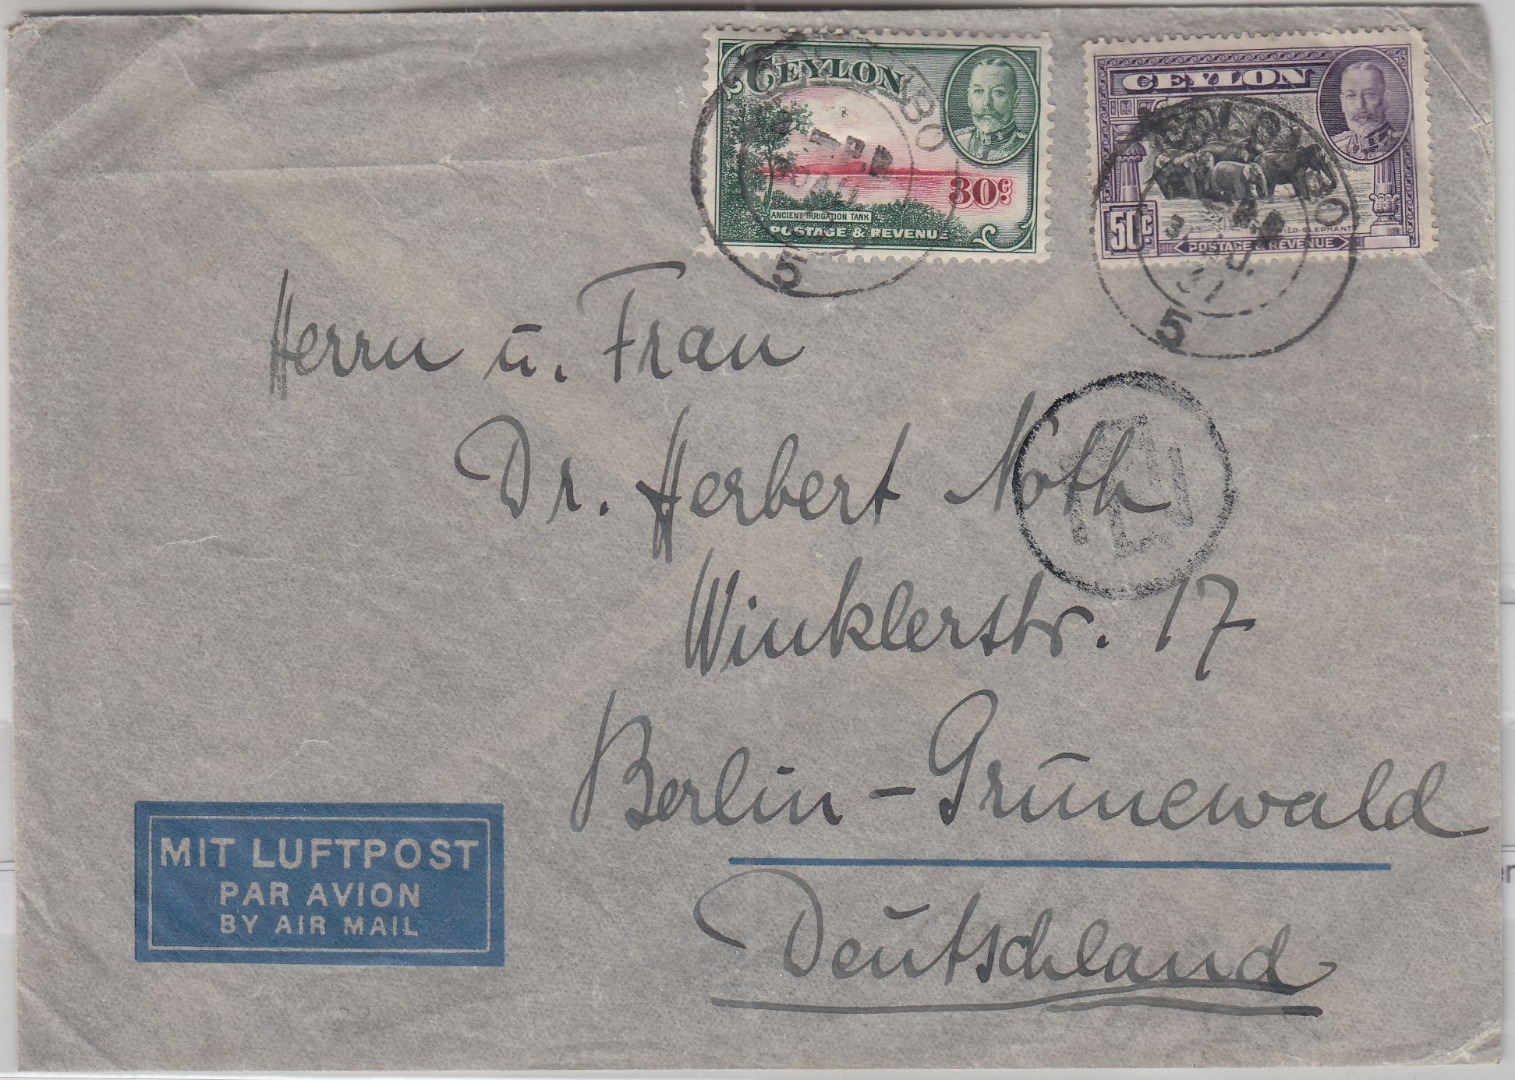 CEYLON
30c
ANCIENT IRRIGATION TANK
POSTAGE & REVENUE
CEYLON
50c
POSTAGE & REVENUE
COLOMBO
5
COLOMBO
30
37
5
Herrn u. Frau
Dr. Herbert Noth
Winklerstr. 17
Berlin-Grunewald
Deutschland
MIT LUFTPOST
PAR AVION
BY AIR MAIL